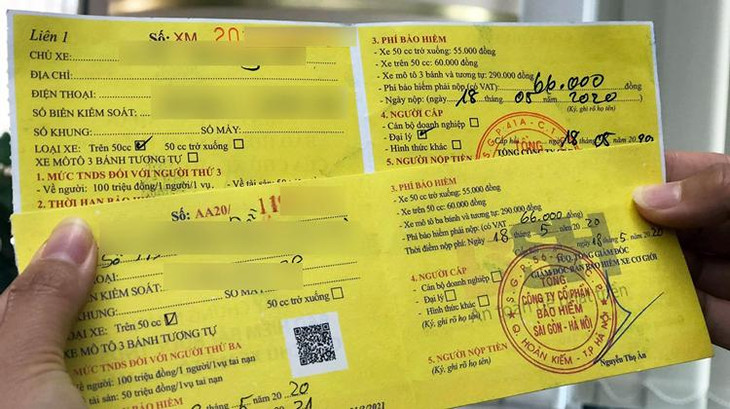 Liên 1
Số: XM 20
CHỦ XE:
ĐỊA CHỈ:
ĐIỆN THOẠI:
SỐ BIÊN KIỂM SOÁT:
SỐ KHUNG: SỐ MÁY:
LOẠI XE: Trên 50cc 50 cc trở xuống:
XE MÔTÔ 3 BÁNH TƯƠNG TỰ
1. MỨC TNDS ĐỐI VỚI NGƯỜI THỨ 3
- Về người: 100 triệu đồng/1 người/1 vụ. - Về tài sản: 50
2. THỜI HẠN BẢO HIỂM
3. PHÍ BẢO HIỂM
- Xe 50 cc trở xuống: 55.000 đồng
- Xe trên 50 cc: 60.000 đồng
- Xe mô tô 3 bánh và tương tự: 290.000 đồng
- Phí bảo hiểm phải nộp (có VAT): 66.000 đồng
- Ngày nộp: (ngày 18 tháng 05 năm 2020 (Ký, ghi rõ họ tên)
4. NGƯỜI CẤP
- Cán bộ doanh nghiệp
- Đại lý
- Hình thức khác:
18 tháng 08 năm 20
5. NGƯỜI NỘP TIỀN
TỔNG
Liên 1
Số: AA20/
KIỂM SOÁT:
SỐ M
LOẠI XE: Trên 50 cc 50 cc trở xuống
XE MÔ TÔ 3 BÁNH TƯƠNG TỰ
MỨC TNDS ĐỐI VỚI NGƯỜI THỨ BA
- Về người: 100 triệu đồng/1 người/1 vụ tai nạn
tài sản: 50 triệu đồng/1 vụ tai nạn
BẢO HIỂM
5 năm 20 20
3. PHÍ BẢO HIỂM
- Xe 50 cc trở xuống: 55.000 đồng
- Xe trên 50 cc: 60.000 đồng
- Xe mô tô ba bánh và tương tự: 290.000 đồng
- Phí bảo hiểm phải nộp: (có VAT) 66.000 đồng
Thời điểm nộp phí: Ngày 18 tháng 5 năm 20 20
ngày 18 tháng 5 năm 2020
TỔNG GIÁM ĐỐC
GIÁM ĐỐC BAN BẢO HIỂM XE CƠ GIỚI
4. NGƯỜI CẤP
- Cán bộ doanh nghiệp
- Đại lý
- Hình thức khác:
(Ký, ghi rõ họ tên)
TỔNG
CÔNG TY CỔ PHẦN
BẢO HIỂM
SÀI GÒN - HÀ NỘI
Q HOÀN KIẾM - T.P HÀ
5. NGƯỜI NỘP TIỀN
(Ký ghi rõ họ tên)
Nguyễn Thọ Ân